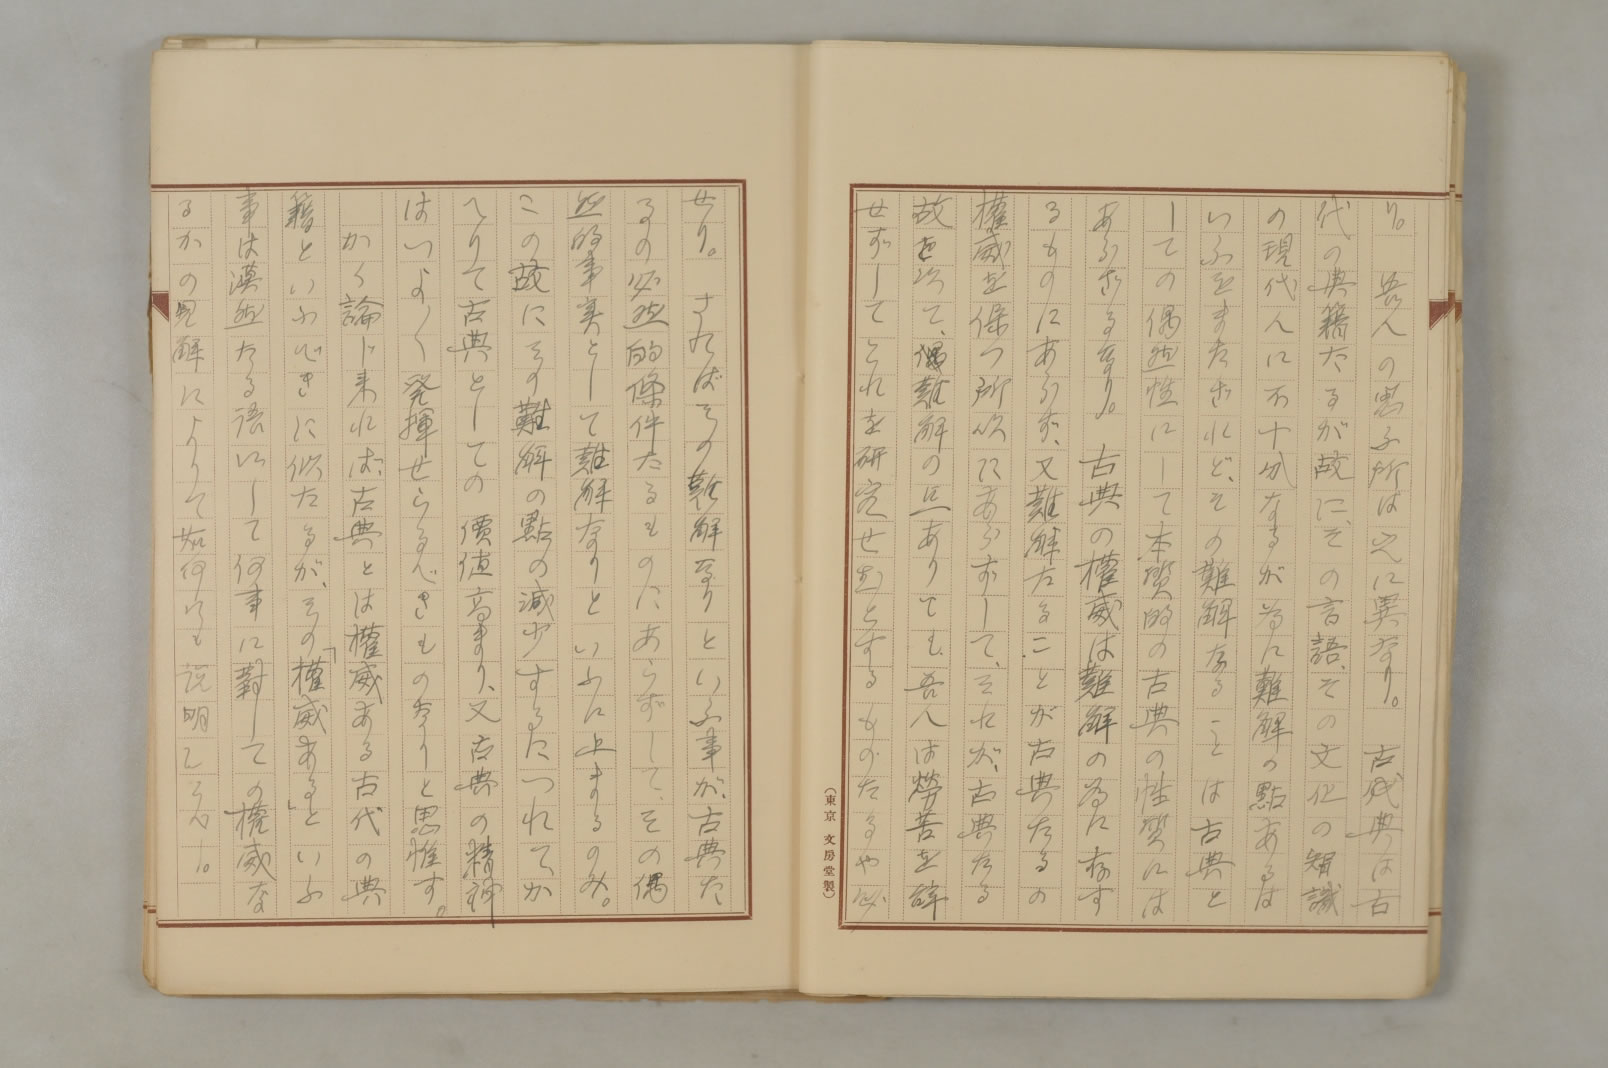 り。　吾人の思ふ所は之に異なり。　古代典は古
代の典籍たるが故に、その言語、その文化の智識
の現代人に不十分なるが為に難解の點あるは
いふをまたざれど、その難解なることは古典と
しての偶然性にして本質的の古典の性質には
あらざるなり。　古典の權威は難解の為に存す
るものにあらず、又難解たることが古典たるの
權威を保つ所以にあらずして、それが古典たる
故を以て、偶難解の点ありても、吾人は勞苦を辞
せずしてこれを研究せむとするものたるや必
せり。　さればその難解なりといふ事が、古典た
るの必然的條件たるものにあらずして、その偶
然的事実として難解なりといふに止まるのみ。
この故にその難解の點の減少するにつれてか
へりて古典としての價値高まり、又古典の精神
はいよ〱発揮せらるべきものなりと思惟す。
かく論じ来れば、古典とは權威ある古代の典
籍といふべきに似たるが、その「權威ある」といふ
事は漠然たる語にして何事に對しての權威な
るかの見解によりて如何にも説明しうべし。
（東京 文房堂製）